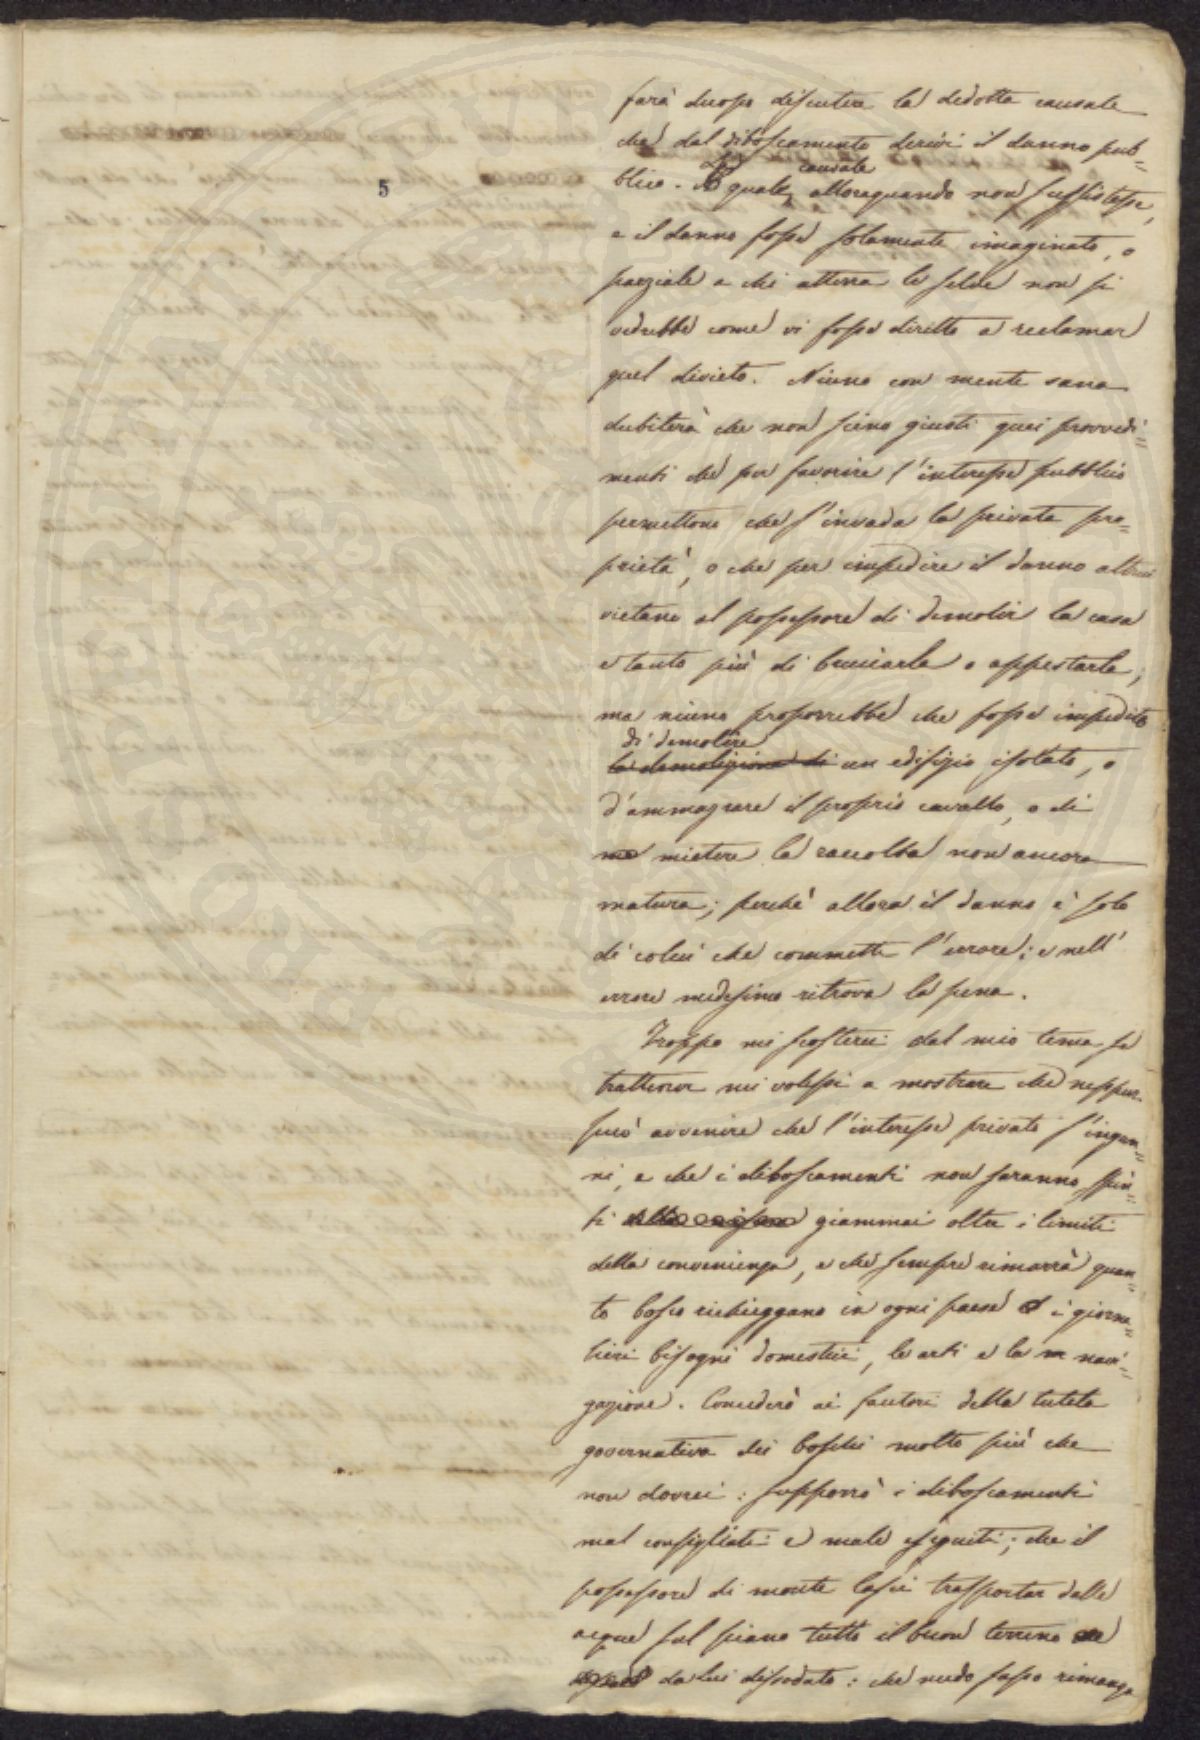 5
farà duopo discutere la dedotta causale
che dal diboscamento derivi il danno pub=
blico. La quale causale, alloraquando non sussistesse,
e il danno fosse solamente imaginato, o
parziale a chi atterra le selve non si
vedrebbe come vi fosse diritto a reclamar
quel divieto. Niuno con mente sana
dubiterà che non sieno giusti quei provvedi=
menti che per favorire l'interesse pubblico
permettono che s'invada la privata pro=
prietà, o che per impedire il danno altrui
vietano al possessore di demolir la casa
e tanto più di bruciarla o appestarla;
ma niuno proporrebbe che fosse impedito
di demolire
la demolizione di un edifizio isolato, o
d'ammazzare il proprio cavallo, o di
me mietere la raccolta non ancora
matura; perchè allora il danno è solo
di colui che commette l'errore; e nell'
errore medesimo ritrova la pena.
Troppo mi scosterei dal mio tema se
trattener mi volessi a mostrare che neppur
può avvenire che l'interesse privato s'ingan=
ni, e che i diboscamenti non saranno spin=
ti giammai oltre i limiti
della convenienza, e che sempre rimarrà quan=
to bosco richieggano in ogni paese i giorna=
lieri bisogni domestici, le arti e la navi=
gazione. Concederò ai fautori della tutela
governativa dei boschi molto più che
non dovrei: supporrò i diboscamenti
mal consigliati e male eseguiti; che il
possessore di monte lasci trasportar dalle
acque sul piano tutto il buon terreno
da lui dissodato: che nudo sasso rimanga